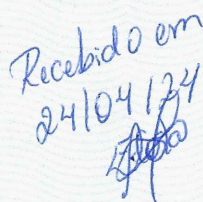 Recebido em
24/04/24